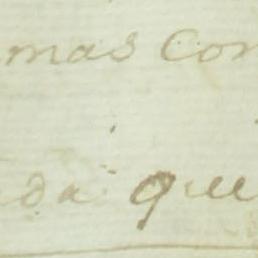 mas con
da que